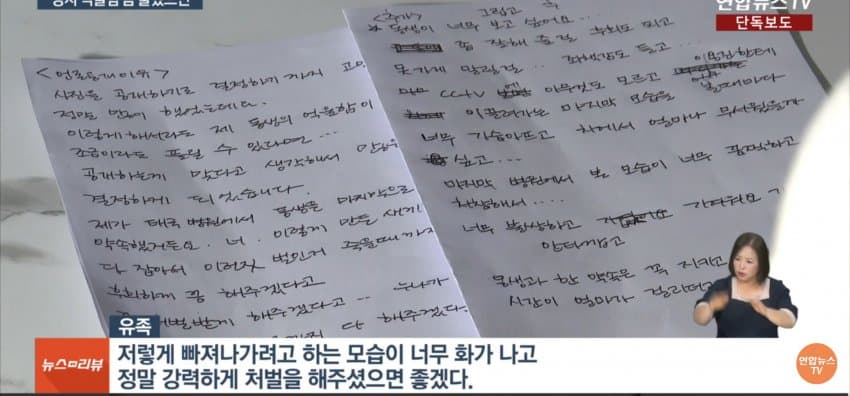 연합뉴스TV
단독보도
<언론공개 이유>
사진을 공개하기로 결정하기까지
정말 많이 했었는데요.
이렇게 해서라도 제 동생의 억울함이
조금이라도 풀릴 수 있다면…
공개하는게 맞다고 생각해서
결정하게 되었습니다.
제가 태국병원에서 동생을 마지막으로
약속했거든요. 너. 이렇게 만든 새끼
다 잡아서 이런짓 벌인거 죽을때까지
후회하게 꼭 해주겠다고
해주겠다고… 누나가
다 해주겠다.
<추가> 그립고 또
동생이 너무 보고 싶어요..
좀 잘해줄걸 후회도 되고
못가게 말릴걸.. 죄책감도 들고…
CCTV에 아무것도 모르고 이용되
끌려가는 마지막 모습을 볼때마다
너무 가슴아프고 차에서 얼마나 무서웠을까
싶고…
마지막 병원에서 본 모습이 너무 끔찍하고
처참해서….
너무 불쌍하고 가여워요
안타깝고
동생과 한 약속은 꼭 지키고
시간이 얼마가 걸리더라
유족
뉴스리뷰
저렇게 빠져나가려고 하는 모습이 너무 화가 나고
정말 강력하게 처벌을 해주셨으면 좋겠다.
연합뉴스
TV